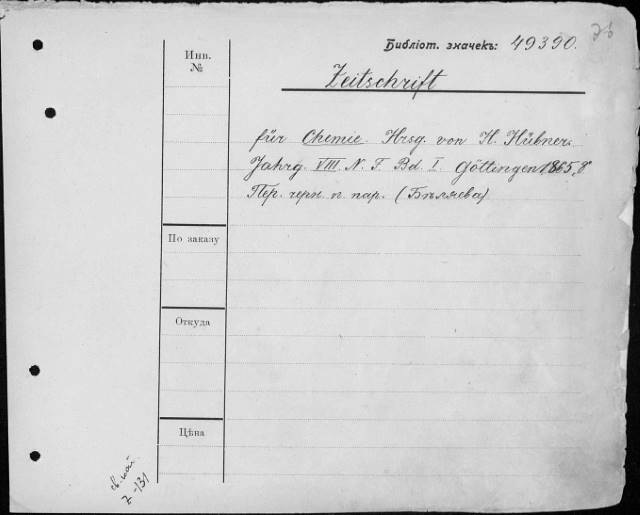 Библіот. значекъ: 49390.
Инв.
№
Zeitschrift
für Chemie. Hrsg. von H. Hübner.
Jahrg. VIII. N. F. Bd. I. Göttingen 1865, 8°
Пер. черн. п. пар. (Бѣляева)
По заказу
Откуда
Цѣна
Z-131